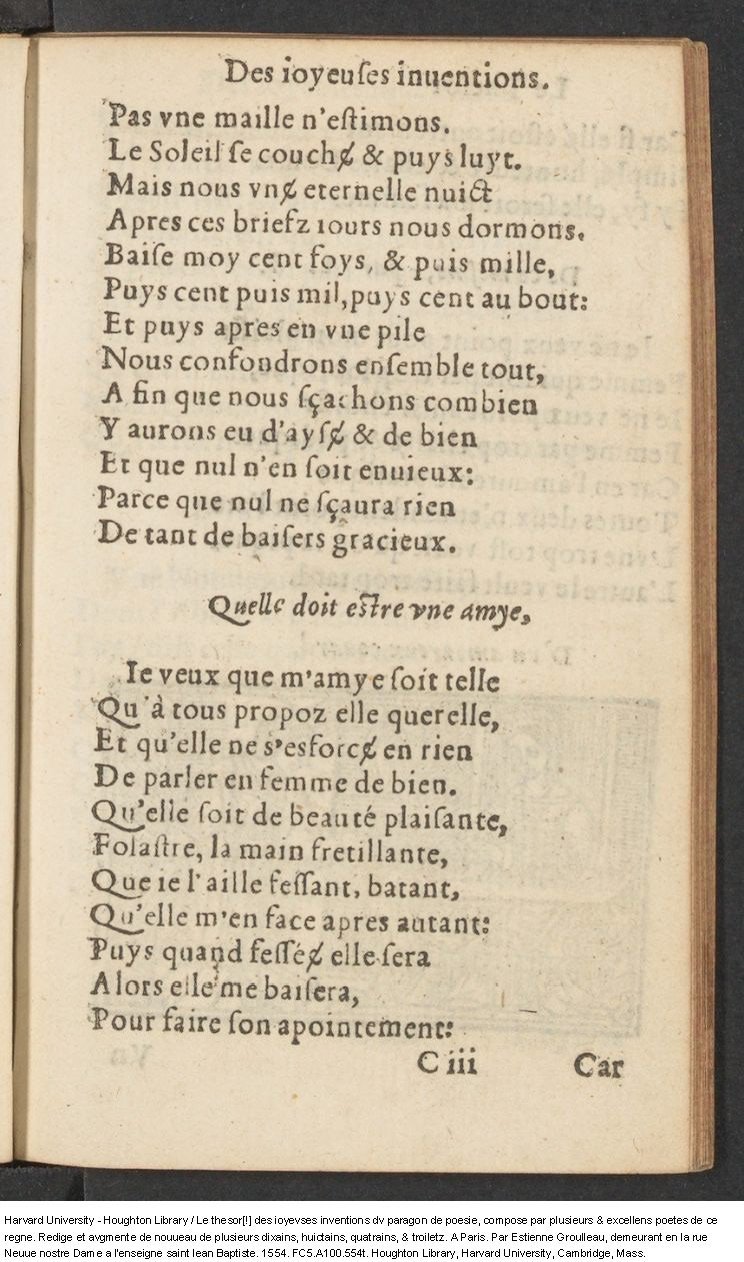 Des ioyeuſes inuentions.
Pas vne maille n'eſtimons.
Le Soleil ſe couchɇ & puys luyt.
Mais nous vnɇ eternelle nuict
Apres ces briefz iours nous dormons.
Baiſe moy cent foys, & puis mille,
Puys cent puis mil, puys cent au bout:
Et puys apres en vne pile
Nous confondrons enſemble tout,
A fin que nous ſçachons combien
Y aurons eu d'ayſɇ & de bien
Et que nul n'en ſoit enuieux:
Parce que nul ne ſçaura rien
De tant de baiſers gracieux.
Quelle doit eſtre vne amye,
Ie veux que m'amye ſoit telle
Qu'à tous propoz elle querelle,
Et qu'elle ne s'esforcɇ en rien
De parler en femme de bien.
Qu'elle ſoit de beauté plaiſante,
Folaſtre, la main fretillante,
Que ie l'aille feſſant, batant,
Qu'elle m'en face apres autant:
Puys quand feſſéɇ elle ſera
Alors elle me baiſera,
Pour faire ſon apointement:
C iii Car
Harvard University - Houghton Library / Le thesor[!] des ioyevses inventions dv paragon de poesie, compose par plusieurs & excellens poetes de ce
regne. Redige et avgmente de nouueau de plusieurs dixains, huictains, quatrains, & troiletz. A Paris. Par Estienne Groulleau, demeurant en la rue
Neuue nostre Dame a l'enseigne saint Iean Baptiste. 1554. FC5.A100.554t. Houghton Library, Harvard University, Cambridge, Mass.